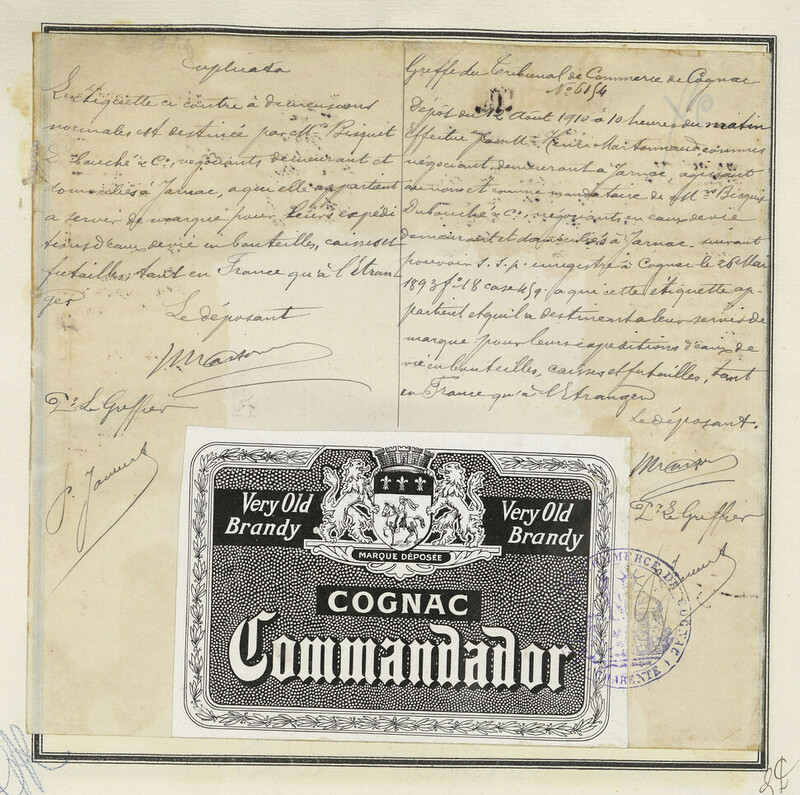 Duplicata
L'étiquette ci contre à dimensions
normales est destinée par Mrs Bisquit
Dubouché & Cie, négociants demeurant et
domiciliés à Jarnac, a qui elle appartient
a servir de marque pour leurs expédi
tions d'eaux de vie en bouteilles, caisses et
futailles, tant en France qu'à l'Etran-
ger
Le déposant
Pr Le Greffier
Greffe du Tribunal de Commerce de Cognac
No 6154
Dépôt du 12 Août 1910 à 10 heures du matin
Effectué par M. Henri commis
négociant, demeurant à Jarnac, agissant
au nom et comme mandataire de Mrs Bisquit
Dubouché & Cie, négociants en eaux de vie
demeurant et domiciliés à Jarnac. suivant
pouvoir s.s.p. enregistré à Cognac le 26 Mai
1893 fo 18 case 459 a qui cette étiquette ap-
partient et qu'il a destinent a leur servir de
marque pour leurs expéditions d'eaux de
vie en bouteilles, caisses et futailles, tant
en France qu'à l'Etranger
Le déposant.
Pr Le Greffier
Very Old
Brandy
Very Old
Brandy
MARQUE DÉPOSÉE
COGNAC
Commandador
COMMERCE DE COGNAC
CHARENTE